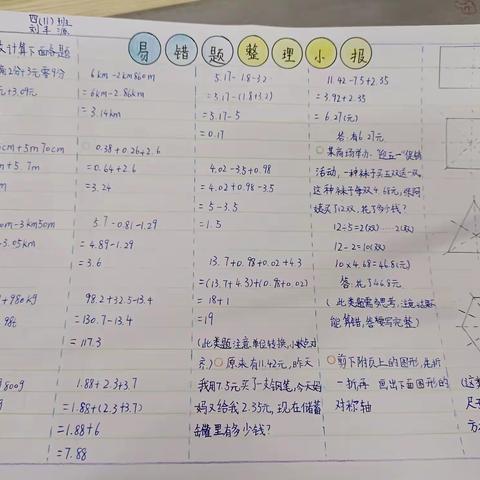 四(11)班
刘丰源
易错题整理小报
计算下面各题
元+3.09元
5m70cm
m+5.7m
m
3km50m
-3.05km
+980kg
.98t
800g
6km-2km860m
=6km-2.86km
=3.14km
0.38+0.26+2.6
=0.64+2.6
=3.24
5.7-0.81-1.29
=4.89-1.29
=3.6
98.2+32.5-13.4
=130.7-13.4
=117.3
1.88+2.3+3.7
=1.88+(2.3+3.7)
=1.88+6
=7.88
5.17-1.8-3.2
=5.17-(1.8+3.2)
=5.17-5
=0.17
4.02-3.5+0.98
=4.02+0.98-3.5
=5-3.5
=1.5
13.7+0.98+0.02+4.3
=(13.7+4.3)+(0.98+0.02)
=18+1
=19
(此类题注意单位转换,小数点对
齐)原来有11.42元,昨天
我用7.5元买了一支钢笔,今天妈
妈又给我2.35元,现在储蓄
罐里有多少钱?
11.42-7.5+2.35
=3.92+2.35
=6.27(元)
答:有6.27元
某商场举办“迎五一”促销
活动,一种袜子买五双送一双,
这种袜子每双4.68元,张阿
姨买了12双,花了多少钱?
12÷5=2(双)……2(双)
12-2=10(双)
10×4.68=46.8(元)
答:花了46.8元
(此类题需多思考,注意
能算错,答要写完整)
剪下附页上的图形,先折
一折再画出下面图形的
对称轴
(这
尺
方